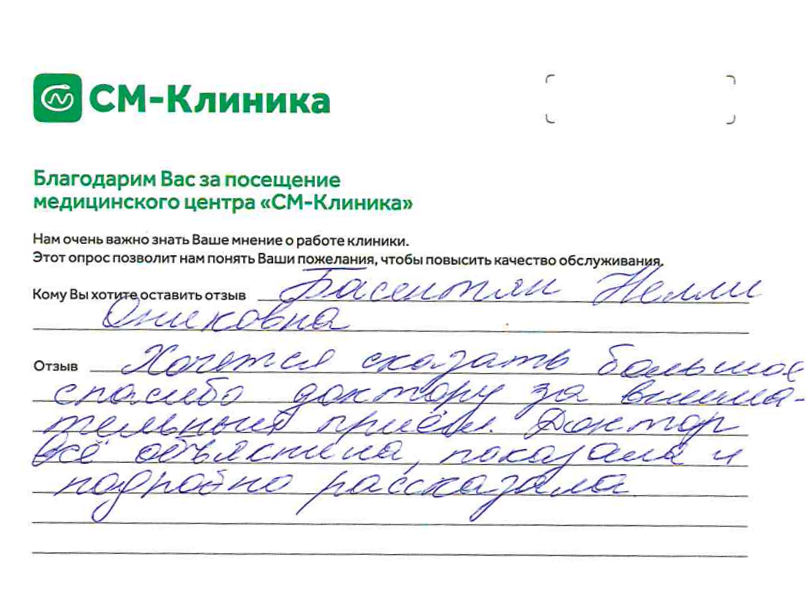 СМ-Клиника
Благодарим Вас за посещение
медицинского центра «СМ-Клиника»
Нам очень важно знать Ваше мнение о работе клиники.
Этот опрос позволит нам понять Ваши пожелания, чтобы повысить качество обслуживания.
Кому Вы хотите оставить отзыв Басентян Нелли
Ониковна
Отзыв Хочется сказать большое
спасибо доктору за внима-
тельный приём. Доктор
всё объяснила, показала и
подробно рассказала.